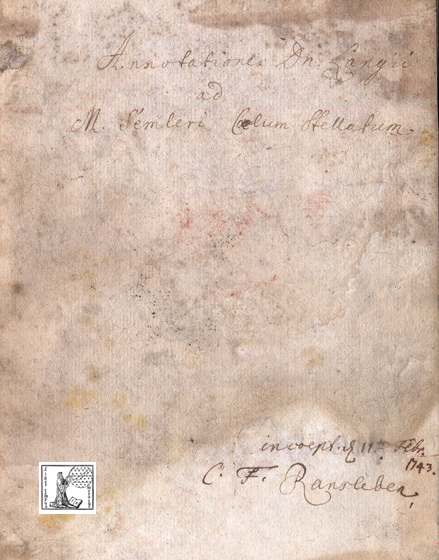 Annotationes Dn: Langii
ad
M. Semleri Cœlum Stellatum.
incoept. d 11. Febr.
1743.
C. F. Ransleben